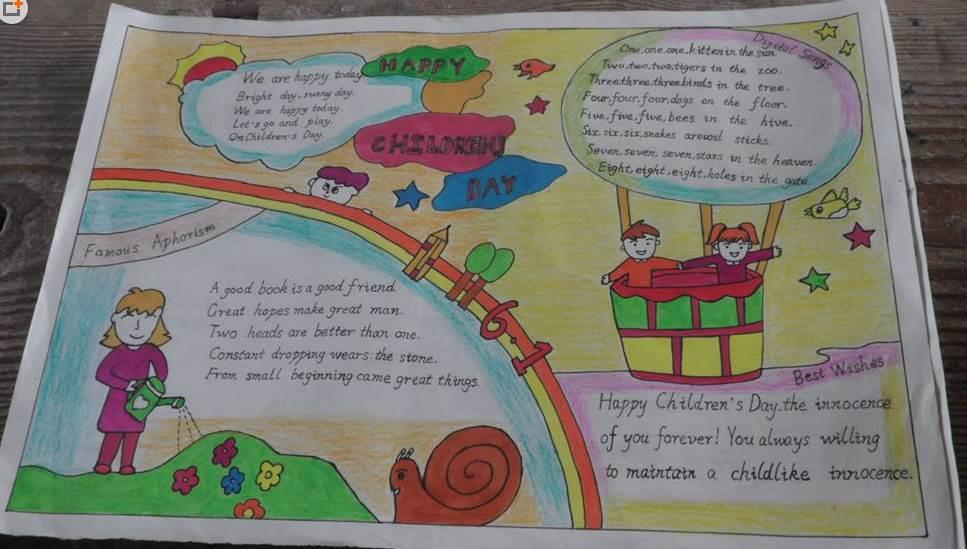 We are happy today
Bright day, sunny day.
We are happy today.
Let's go and play.
On Children's Day.
HAPPY
CHILDREN'S
DAY
Digital Songs
One, one, one, kitten in the sun.
Two, two, two, tigers in the zoo.
Three, three, three birds in the tree.
Four, four, four, dogs on the floor.
Five, five, five, bees in the hive.
Six, six, six, snakes around sticks.
Seven, seven, seven, stars in the heaven.
Eight, eight, eight, holes in the gate.
Famous Aphorism
A good book is a good friend.
Great hopes make great man.
Two heads are better than one.
Constant dropping wears the stone.
From small beginning came great things.
6.1
Best Wishes
Happy Children's Day. the innocence
of you forever! You always willing
to maintain a childlike innocence.